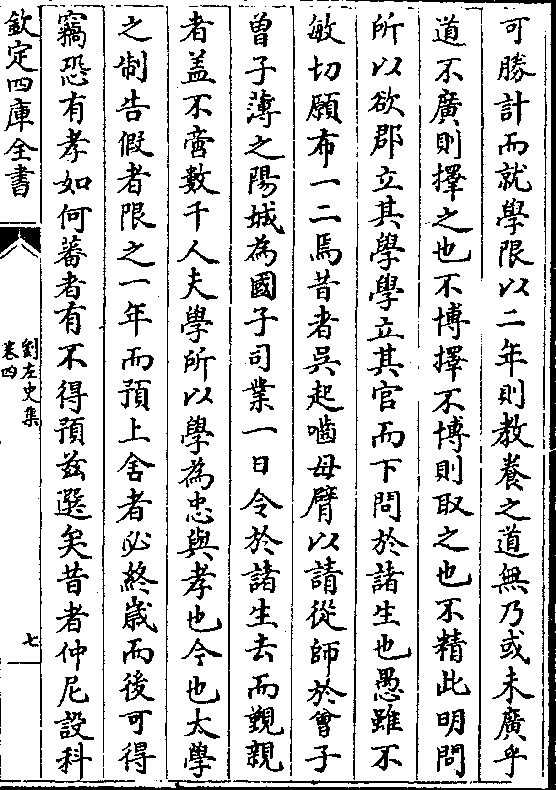 可勝計而就學限以二年則教養之道無乃或未廣乎
道不廣則擇之也不博擇不博則取之也不精此明問
所以欲郡立其學學立其官而下問於諸生也愚雖不
敏切願布一二焉昔者吳起嚙母臂以請從師於曾子
曾子薄之陽城為國子司業一日令於諸生去而覲親
者盖不啻數千人夫學所以學為忠與孝也今也太學
之制告假者限之一年而預上舍者必終歳而後可得
竊恐有孝如何蕃者有不得預兹選矣昔者仲尼設科
欽定四庫全書
劉左史集
卷四
七